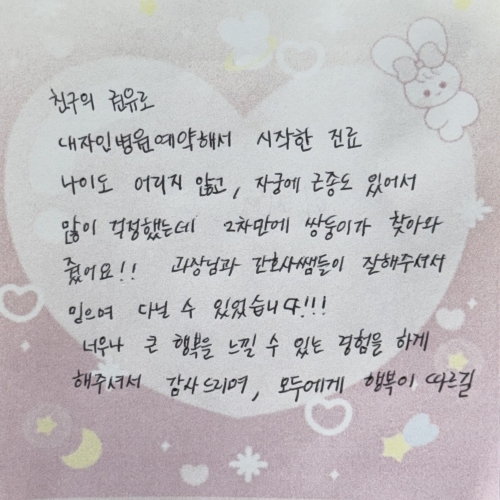 친구의 권유로
내자인병원예약해서 시작한 진료
나이도 어리지 않고, 자궁에 근종도 있어서
많이 걱정했는데 2차만에 쌍둥이가 찾아와
줬어요!! 과장님과 간호사쌤들이 잘해주셔서
믿으며 다닐 수 있었습니다!!!
너우나 큰 행복을 느낄 수 있는 경험을 하게
해주셔서 감사드리며, 모두에게 행복이 따르길